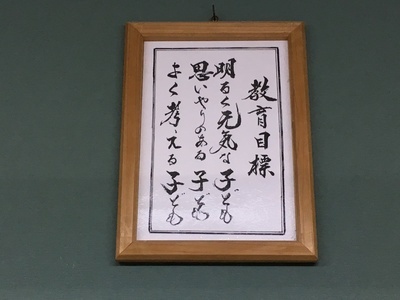 教育目標
明るく元気な子ども
思いやりのある子ども
よく考える子ども